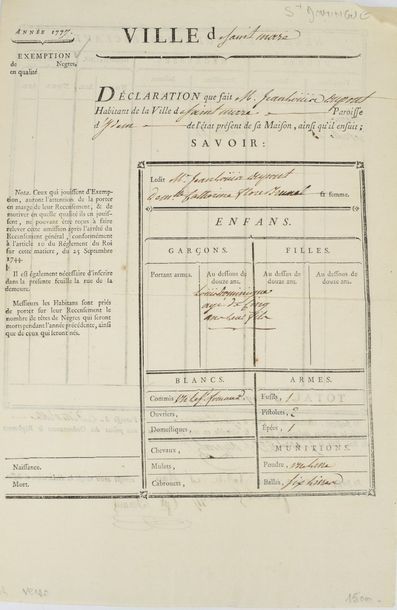 St Domingue
ANNÉE 1777.
VILLE d Saint marc
EXEMPTION
de Negres,
en qualité
DÉCLARATION que fait M. Jean Louis
Habitant de la Ville de Saint marc Paroisse
d Idem de l'état présent de sa Maison, ainsi qu'il ensuit;
SAVOIR:
Nota. Ceux qui jouissent d'Exemp-
tion, auront l'attention de la porter
en marge de leur Recensement, & de
motiver en quelle qualité ils en jouis-
sent, ne pouvant être reçus à faire
relever cette omission après l'arrêté du
Recensement général, conformément
à l'article 10 du Réglement du Roi
sur cette matiere, du 25 Septembre
1744.
Il est également nécessaire d'inscrire
dans la présente feuille la rue de sa
demeure.
Messieurs les Habitans sont priés
de porter sur leur Recensement le
nombre de têtes de Negres qui seront
morts pendant l'année précédente, ainsi
que de ceux qui seront nés.
Naissance.
Mort.
Ledit Mr Jean Louis
sa femme.
ENFANS.
GARÇONS.
FILLES.
Portant armes.
Au dessous de
douze ans.
Au dessus de
douze ans.
Au dessous de
douze ans.
Louis Dominique
agé de cinq
BLANCS.
ARMES.
Commis
Fusils, 1
Ouvriers,
Pistolets, 2
Domestiques,
Épées, 1
Chevaux,
MUNITIONS.
Mulets,
Poudre, une livre
Cabrouets,
Balles, six livres
verso
1500.-